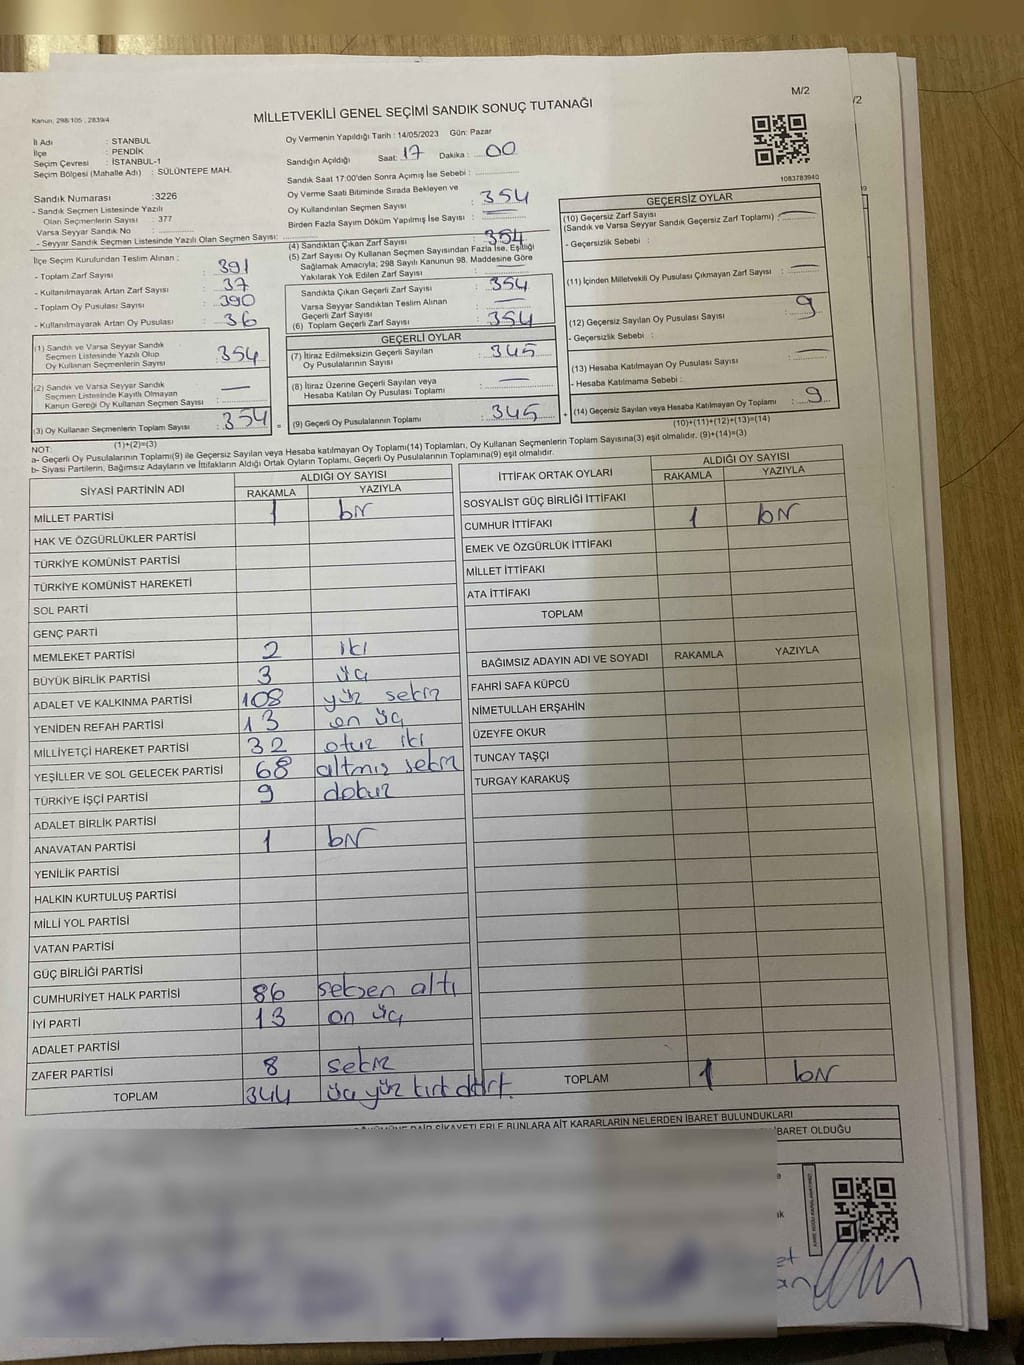 M/2
/2
Kanun, 298/105 ; 2839/4
MİLLETVEKİLİ GENEL SEÇİMİ SANDIK SONUÇ TUTANAĞI
İl Adı : STANBUL
İlçe : PENDİK
Seçim Çevresi : İSTANBUL-1
Seçim Bölgesi (Mahalle Adı) : SÜLÜNTEPE MAH.
Sandık Numarası :3226
- Sandık Seçmen Listesinde Yazılı
Olan Seçmenlerin Sayısı : 377
Varsa Seyyar Sandık No :
- Seyyar Sandık Seçmen Listesinde Yazılı Olan Seçmen Sayısı:
Oy Vermenin Yapıldığı Tarih : 14/05/2023 Gün: Pazar
Sandığın Açıldığı Saat: 17 Dakika : 00
Sandık Saat 17:00'den Sonra Açılmış İse Sebebi :
Oy Verme Saati Bitiminde Sırada Bekleyen ve
Oy Kullandırılan Seçmen Sayısı : 354
Birden Fazla Sayım Döküm Yapılmış İse Sayısı :
1083783940
İlçe Seçim Kurulundan Teslim Alınan ;
- Toplam Zarf Sayısı : 391
- Kullanılmayarak Artan Zarf Sayısı : 37
- Toplam Oy Pusulası Sayısı : 390
- Kullanılmayarak Artan Oy Pusulası : 36
(1) Sandık ve Varsa Seyyar Sandık
Seçmen Listesinde Yazılı Olup
Oy Kullanan Seçmenlerin Sayısı : 354
(2) Sandık ve Varsa Seyyar Sandık
Seçmen Listesinde Kayıtlı Olmayan
Kanun Gereği Oy Kullanan Seçmen Sayısı : —
(3) Oy Kullanan Seçmenlerin Toplam Sayısı : 354
(1)+(2)=(3)
(4) Sandıktan Çıkan Zarf Sayısı : 354
(5) Zarf Sayısı Oy Kullanan Seçmen Sayısından Fazla İse, Eşitliği
Sağlamak Amacıyla; 298 Sayılı Kanunun 98. Maddesine Göre
Yakılarak Yok Edilen Zarf Sayısı : —
Sandıkta Çıkan Geçerli Zarf Sayısı : 354
Varsa Seyyar Sandıktan Teslim Alınan
Geçerli Zarf Sayısı : —
(6) Toplam Geçerli Zarf Sayısı : 354
GEÇERLİ OYLAR
(7) İtiraz Edilmeksizin Geçerli Sayılan
Oy Pusulalarının Sayısı : 345
(8) İtiraz Üzerine Geçerli Sayılan veya
Hesaba Katılan Oy Pusulası Toplamı : —
= (9) Geçerli Oy Pusulalarının Toplamı : 345
GEÇERSİZ OYLAR
(10) Geçersiz Zarf Sayısı
(Sandık ve Varsa Seyyar Sandık Geçersiz Zarf Toplamı) : —
- Geçersizlik Sebebi :
(11) İçinden Milletvekili Oy Pusulası Çıkmayan Zarf Sayısı : —
(12) Geçersiz Sayılan Oy Pusulası Sayısı : 9
- Geçersizlik Sebebi :
(13) Hesaba Katılmayan Oy Pusulası Sayısı : —
- Hesaba Katılmama Sebebi :
+ (14) Geçersiz Sayılan veya Hesaba Katılmayan Oy Toplamı : 9
(10)+(11)+(12)+(13)=(14)
NOT:
a- Geçerli Oy Pusulalarının Toplamı(9) ile Geçersiz Sayılan veya Hesaba katılmayan Oy Toplamı(14) Toplamları, Oy Kullanan Seçmenlerin Toplam Sayısına(3) eşit olmalıdır. (9)+(14)=(3)
b- Siyasi Partilerin, Bağımsız Adayların ve İttifakların Aldığı Ortak Oyların Toplamı, Geçerli Oy Pusulalarının Toplamına(9) eşit olmalıdır.
SİYASİ PARTİNİN ADI ALDIĞI OY SAYISI
RAKAMLA YAZIYLA
MİLLET PARTİSİ 1 bir
HAK VE ÖZGÜRLÜKLER PARTİSİ
TÜRKİYE KOMÜNİST PARTİSİ
TÜRKİYE KOMÜNİST HAREKETİ
SOL PARTİ
GENÇ PARTİ
MEMLEKET PARTİSİ 2 iki
BÜYÜK BİRLİK PARTİSİ 3 üç
ADALET VE KALKINMA PARTİSİ 108 yüz sekiz
YENİDEN REFAH PARTİSİ 13 on üç
MİLLİYETÇİ HAREKET PARTİSİ 32 otuz iki
YEŞİLLER VE SOL GELECEK PARTİSİ 68 altmış sekiz
TÜRKİYE İŞÇİ PARTİSİ 9 dokuz
ADALET BİRLİK PARTİSİ
ANAVATAN PARTİSİ 1 bir
YENİLİK PARTİSİ
HALKIN KURTULUŞ PARTİSİ
MİLLİ YOL PARTİSİ
VATAN PARTİSİ
GÜÇ BİRLİĞİ PARTİSİ
CUMHURİYET HALK PARTİSİ 86 seksen altı
İYİ PARTİ 13 on üç
ADALET PARTİSİ
ZAFER PARTİSİ 8 sekiz
TOPLAM 344 üç yüz kırk dört.
İTTİFAK ORTAK OYLARI ALDIĞI OY SAYISI
RAKAMLA YAZIYLA
SOSYALİST GÜÇ BİRLİĞİ İTTİFAKI
CUMHUR İTTİFAKI 1 bir
EMEK VE ÖZGÜRLÜK İTTİFAKI
MİLLET İTTİFAKI
ATA İTTİFAKI
TOPLAM
BAĞIMSIZ ADAYIN ADI VE SOYADI RAKAMLA YAZIYLA
FAHRİ SAFA KÜPCÜ
NİMETULLAH ERŞAHİN
ÜZEYFE OKUR
TUNCAY TAŞÇI
TURGAY KARAKUŞ
TOPLAM 1 bir
ŞİKAYETLERLE BUNLARA AİT KARARLARIN NELERDEN İBARET BULUNDUKLARI
İBARET OLDUĞU